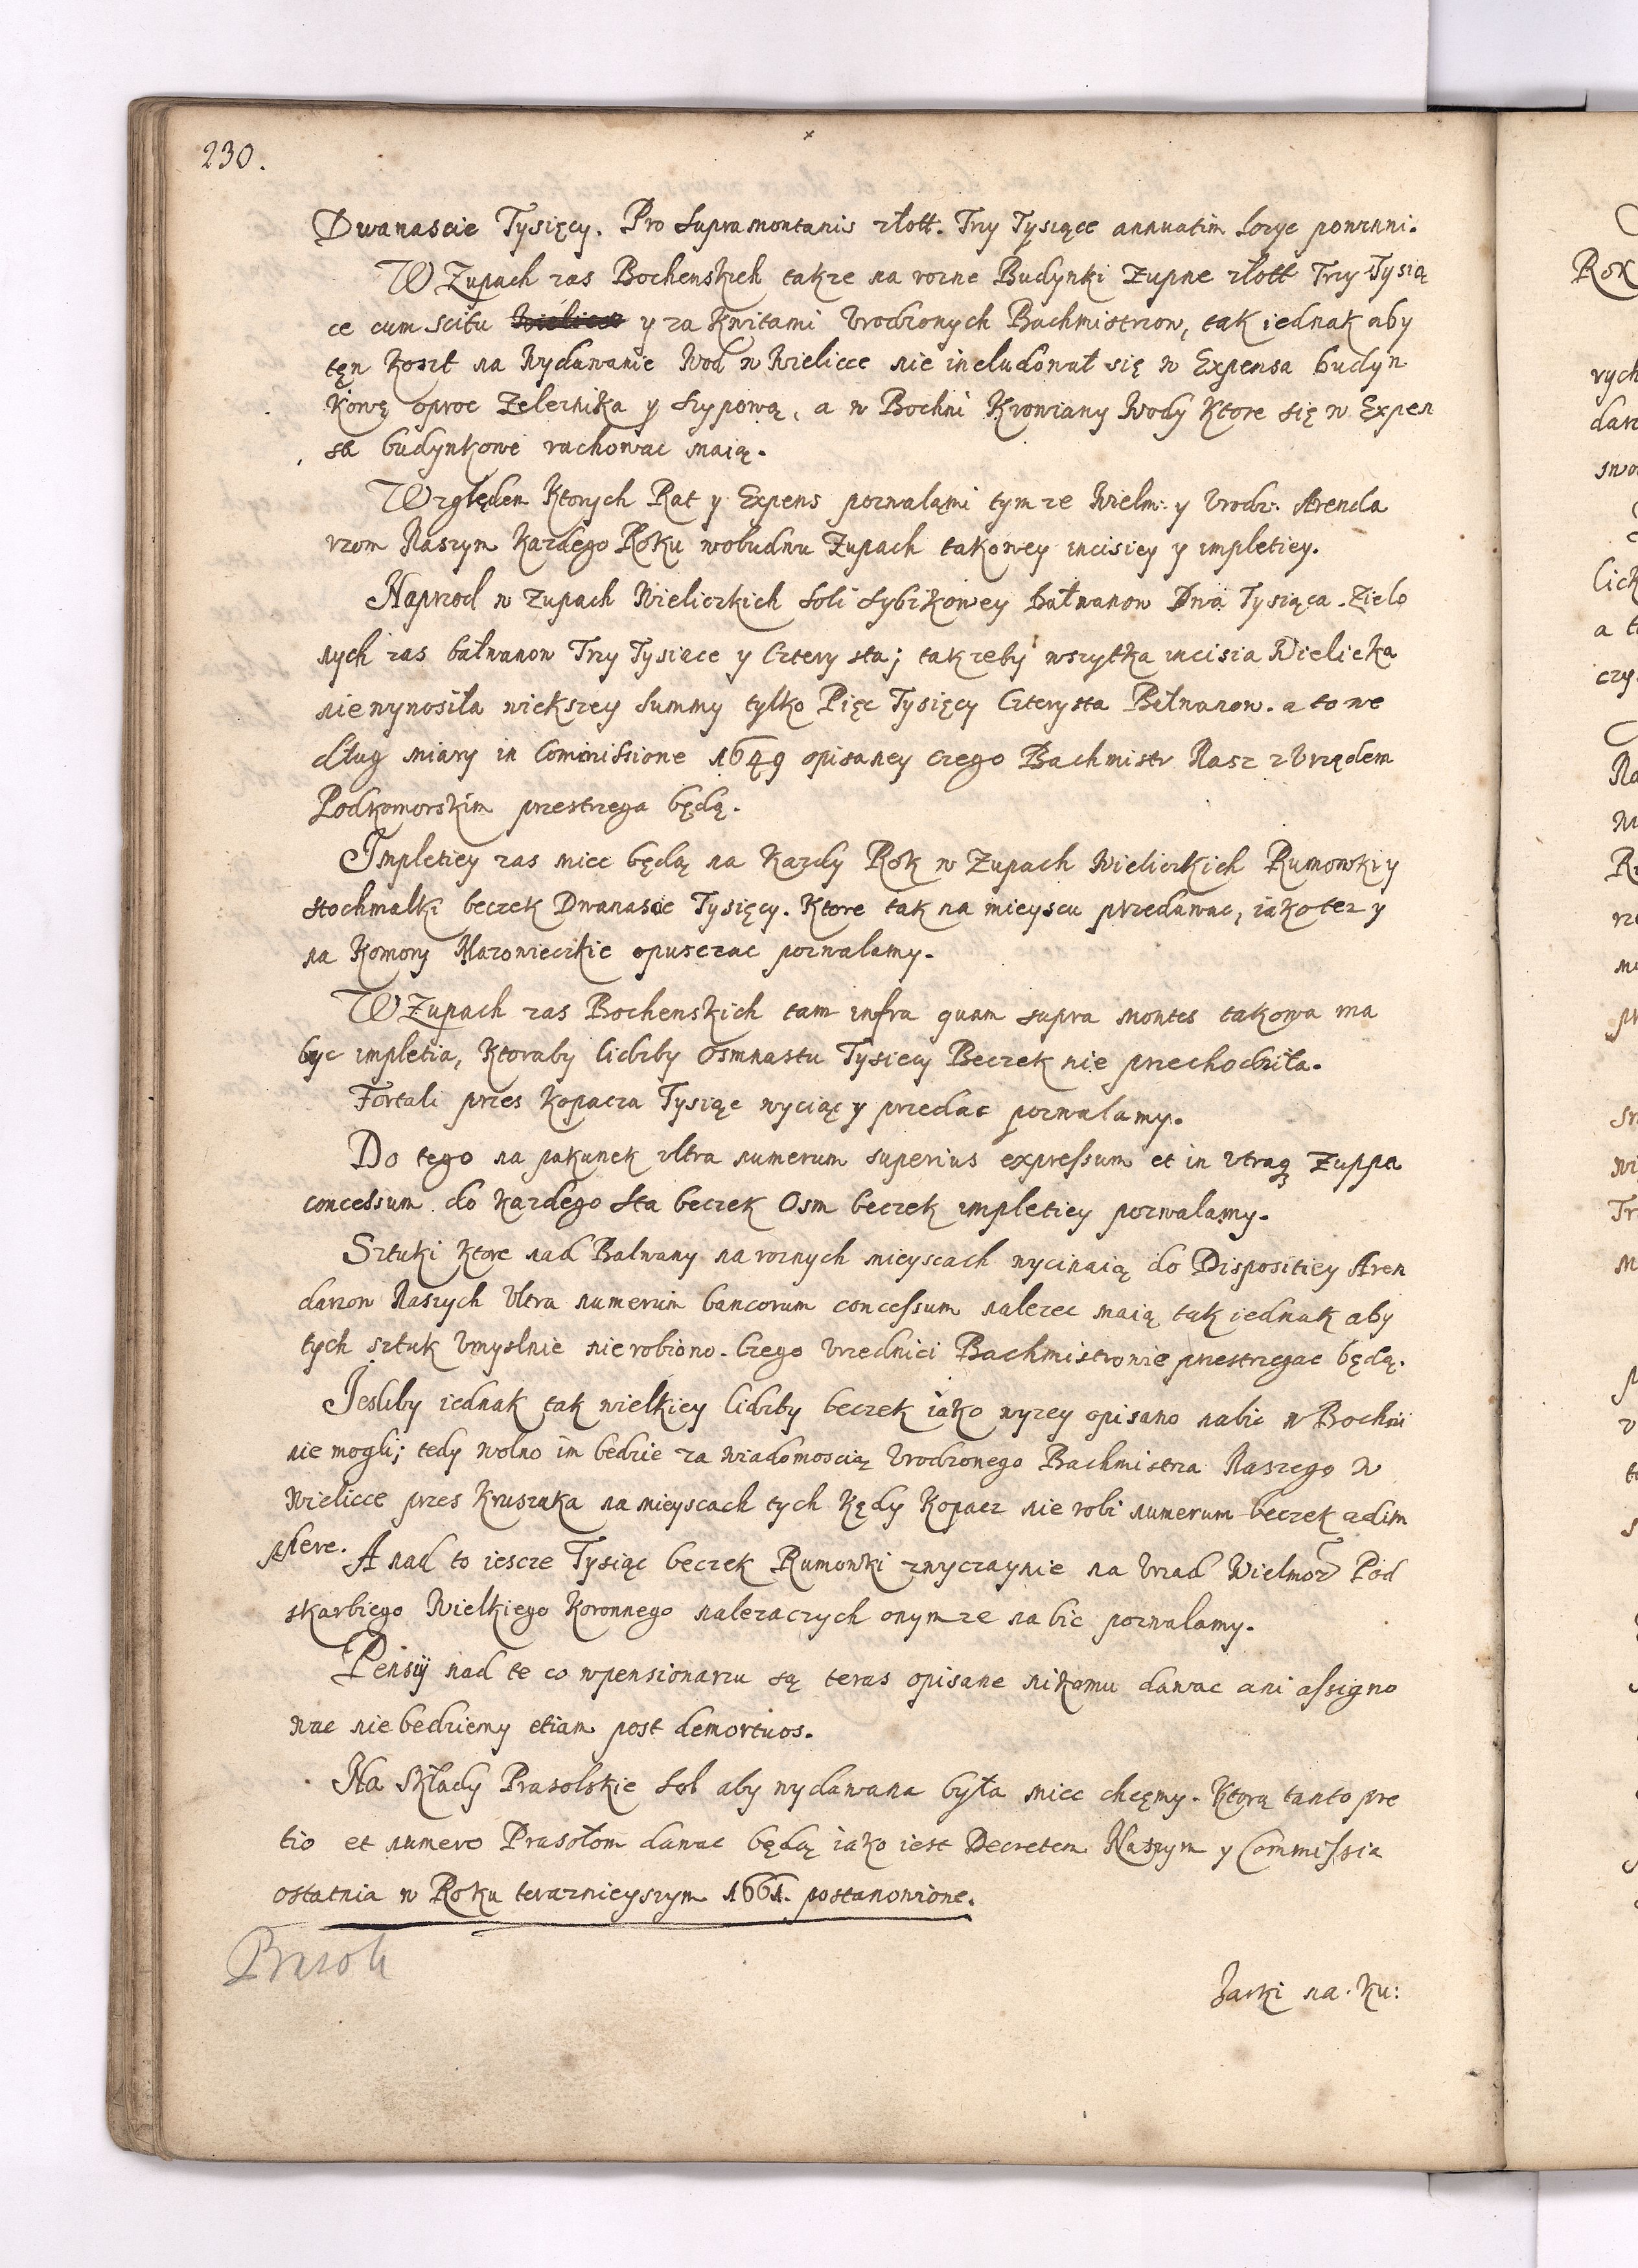 230.
Dwanascie Tysięcy. Pro supramontanis złott. Trzy Tysiące annuatim łozyc powinni.
W Zupach zas Bochenskich takze na rozne Budynki Zupne złott Trzy Tysią
ce cum scitu y za Kwitami Vrodzonych Bachmistrzow, tak iednak aby
tęn koszt na Wydawanie Wod w Wielicce nie includował się w Expensa budyn
kowę oproc Zeleznika y szypową, a w Bochni Krowiany Wody Ktore się w Expen
sa budynkowe rachowac maią.
Względem Ktorych Rat y Expens pozwalami tym ze Wielm: y Vrodz: Arenda
rzom Naszym Kazdego Roku wobudwu Zupach takowey incisiey y impletiey.
Naprzod w Zupach Wielickich soli sybikowey bałwanow Dwa Tysiąca. Zielo
nych zas bałwanow Trzy Tysiace y Cztery sta; tak zeby wszytka incisia Wielicka
nie wynosiła wiekszey summy tylko Pięc Tysięcy Czterysta Bałwanow. a to we
dług miary in Commissione 1649 opisaney czego Bachmistr Nasz z Vrzędem
Podkomorskim przestrzega będą.
Impletiey zas miec będą na Kazdy Rok w Zupach Wielickich Rumowki y
stochmalki beczek Dwanascie Tysięcy. Ktore tak na mieyscu przedawac, iako tez y
na Komory Mazowieckie opuszczac pozwalamy.
W Zupach zas Bochenskich tam infra quam supra montes takowa ma
byc impletia, Ktoraby liczby Osmnastu Tysiecy Beczek nie przechodziła.
Fortali przes Kopacza Tysiąc wyciąc y przedac pozwalamy.
Do tego na pakunek vltra numerum superius expressum et in vtraq Zuppa
concessum do Kazdego sta beczek Osm beczek impletiey pozwalamy.
Sztuki Ktore nad Balwany na roznych mieyscach wycinaią do Dispositiey Aren
darzow Naszych Vltra numerum bancorum concessum nalezec maią tak iednak aby
tych sztuk Vmyslnie nie robiono. Czego Vrzednici Bachmistrowie przestrzegac będą.
Jesliby iednak tak wielkiey lidzby beczek iako wyzey opisano nabic w Bochni
nie mogli; tedy wolno im bedzie za wiadomoscią Vrodzonego Bachmistrza Naszego w
Wielicce przes Kruszaka na mieyscach tych Kędy Kopacz nie robi numerum beczek adim
plere. A nad to iescze Tysiąc beczek Rumowki zwyczaynie na Vrzad Wielmoz Pod
skarbiego Wielkiego Koronnego nalezaczych onymze nabic pozwalamy.
Pensij nad te co w pensionarzu są teras opisane nikomu dawac ani assigno
wac nie bedziemy etiam post demortuos.
Na Składy Prasolskie sol aby wydawana była miec chcęmy. Ktorą tanto pre
tio et numero Prasołom dawac będą iako iest Decretem Naszym y Commissia
ostatnia w Roku teraznieyszym 1661. postanowione.
Prasoli
Zarki na. Ku: